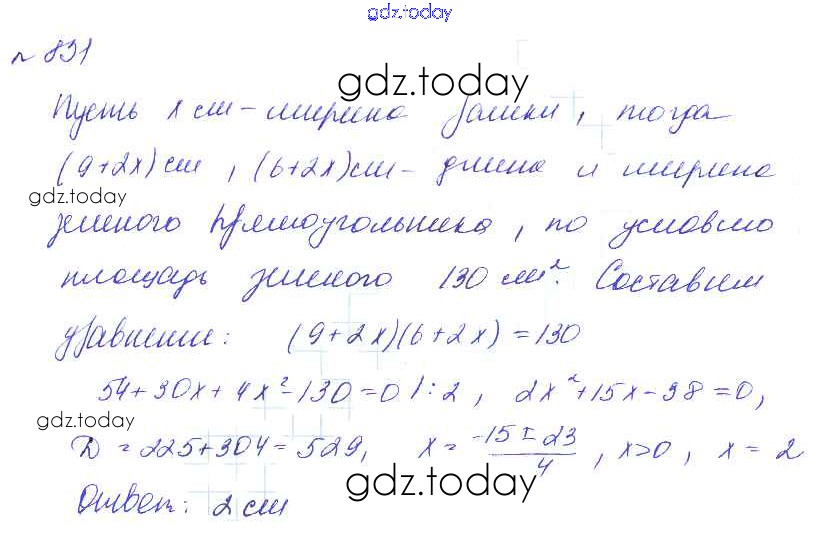 gdz.today
№ 891
gdz.today
Пусть x см - ширина рамки, тогда
(9+2x) см, (6+2x) см - длина и ширина
gdz.today
внешнего прямоугольника, по условию
площадь внешнего 130 см². Составим
уравнение: (9+2x)(6+2x) = 130
54+30x+4x²-130=0 |:2, 2x²+15x-38=0,
gdz.today
D = 225+304 = 529, x = (-15±23)/4, x>0, x = 2
gdz.today
Ответ: 2 см